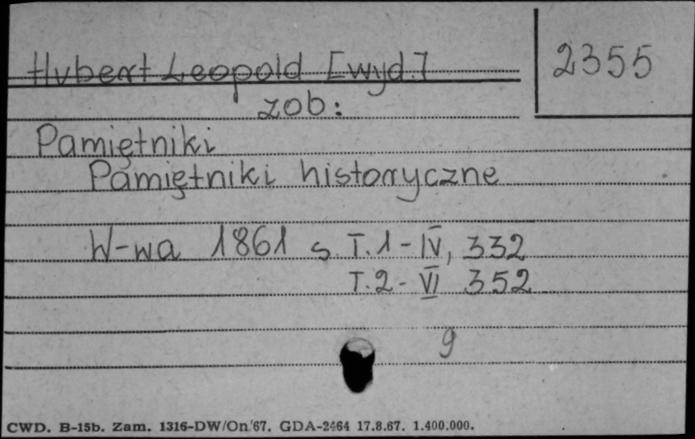 Hubert Leopold [wyd.]
2355
zob:
Pamiętniki
Pamiętniki historyczne
W-wa 1861 s. T.1-IV, 332
T.2-VI 352
9
CWD. B-15b. Zam. 1316-DW/On/67. GDA-2464 17.8.67. 1.400.000.